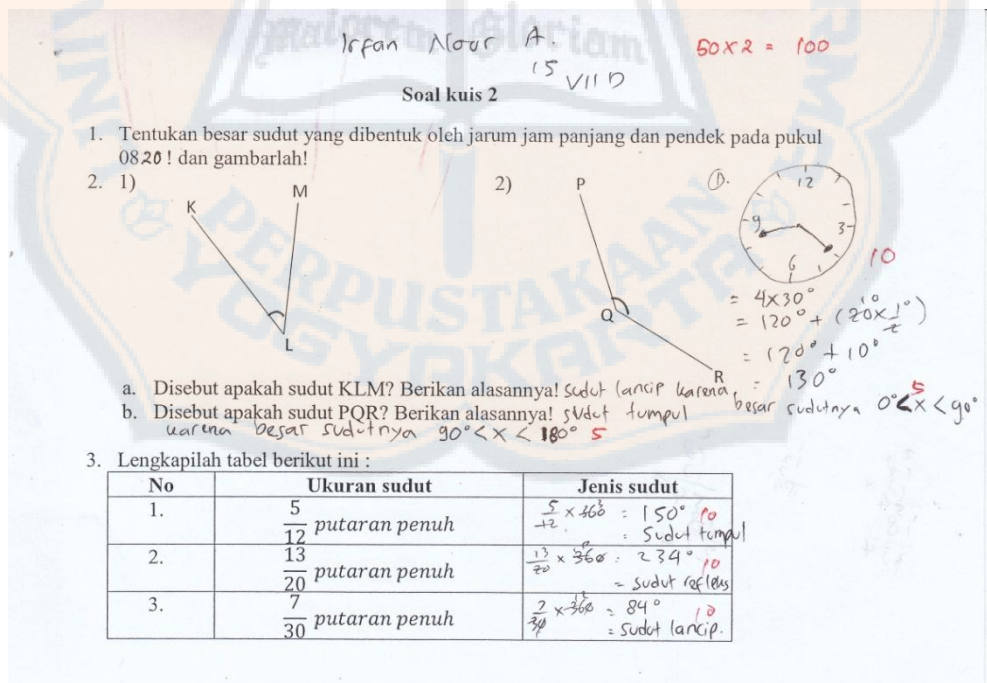 Irfan Nour A.
15 VII D
50 x 2 = 100
Soal kuis 2
1. Tentukan besar sudut yang dibentuk oleh jarum jam panjang dan pendek pada pukul
0820 ! dan gambarlah!
2. 1)
K
M
L
2)
P
Q
R
1).
12
9
3
6
10
= 4x30°
= 120° + (20 x 1/2°) 10
= 120° + 10°
= 130°
a. Disebut apakah sudut KLM? Berikan alasannya! sudut lancip karena besar sudutnya 0°<x<90° 5
b. Disebut apakah sudut PQR? Berikan alasannya! sudut tumpul
karena besar sudutnya 90°<x<180° 5
3. Lengkapilah tabel berikut ini :
No Ukuran sudut Jenis sudut
1. 5/12 putaran penuh 5/12 x 360 = 150° 10
= Sudut tumpul
2. 13/20 putaran penuh 13/20 x 360 = 234° 10
= sudut refleks
3. 7/30 putaran penuh 7/30 x 360 = 84° 10
= sudut lancip.
PERPUSTAKAAN
YOGYAKARTA